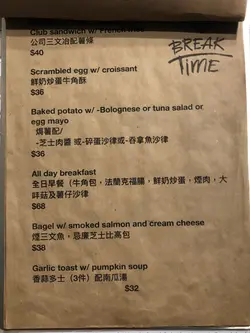 Club sandwich w/ French fries
公司三文冶配薯條
$40
BREAK
TIME
Scrambled egg w/ croissant
鮮奶炒蛋牛角酥
$36
Baked potato w/ -Bolognese or tuna salad or
egg mayo
焗薯配/
-芝士肉醬 或-碎蛋沙律或-吞拿魚沙律
$36
All day breakfast
全日早餐（牛角包，法蘭克福腸，鮮奶炒蛋，煙肉，大
啡菇及薯仔沙律
$68
Bagel w/ smoked salmon and cream cheese
煙三文魚，忌廉芝士比高包
$38
Garlic toast w/ pumpkin soup
香蒜多士（3件）配南瓜湯
$32